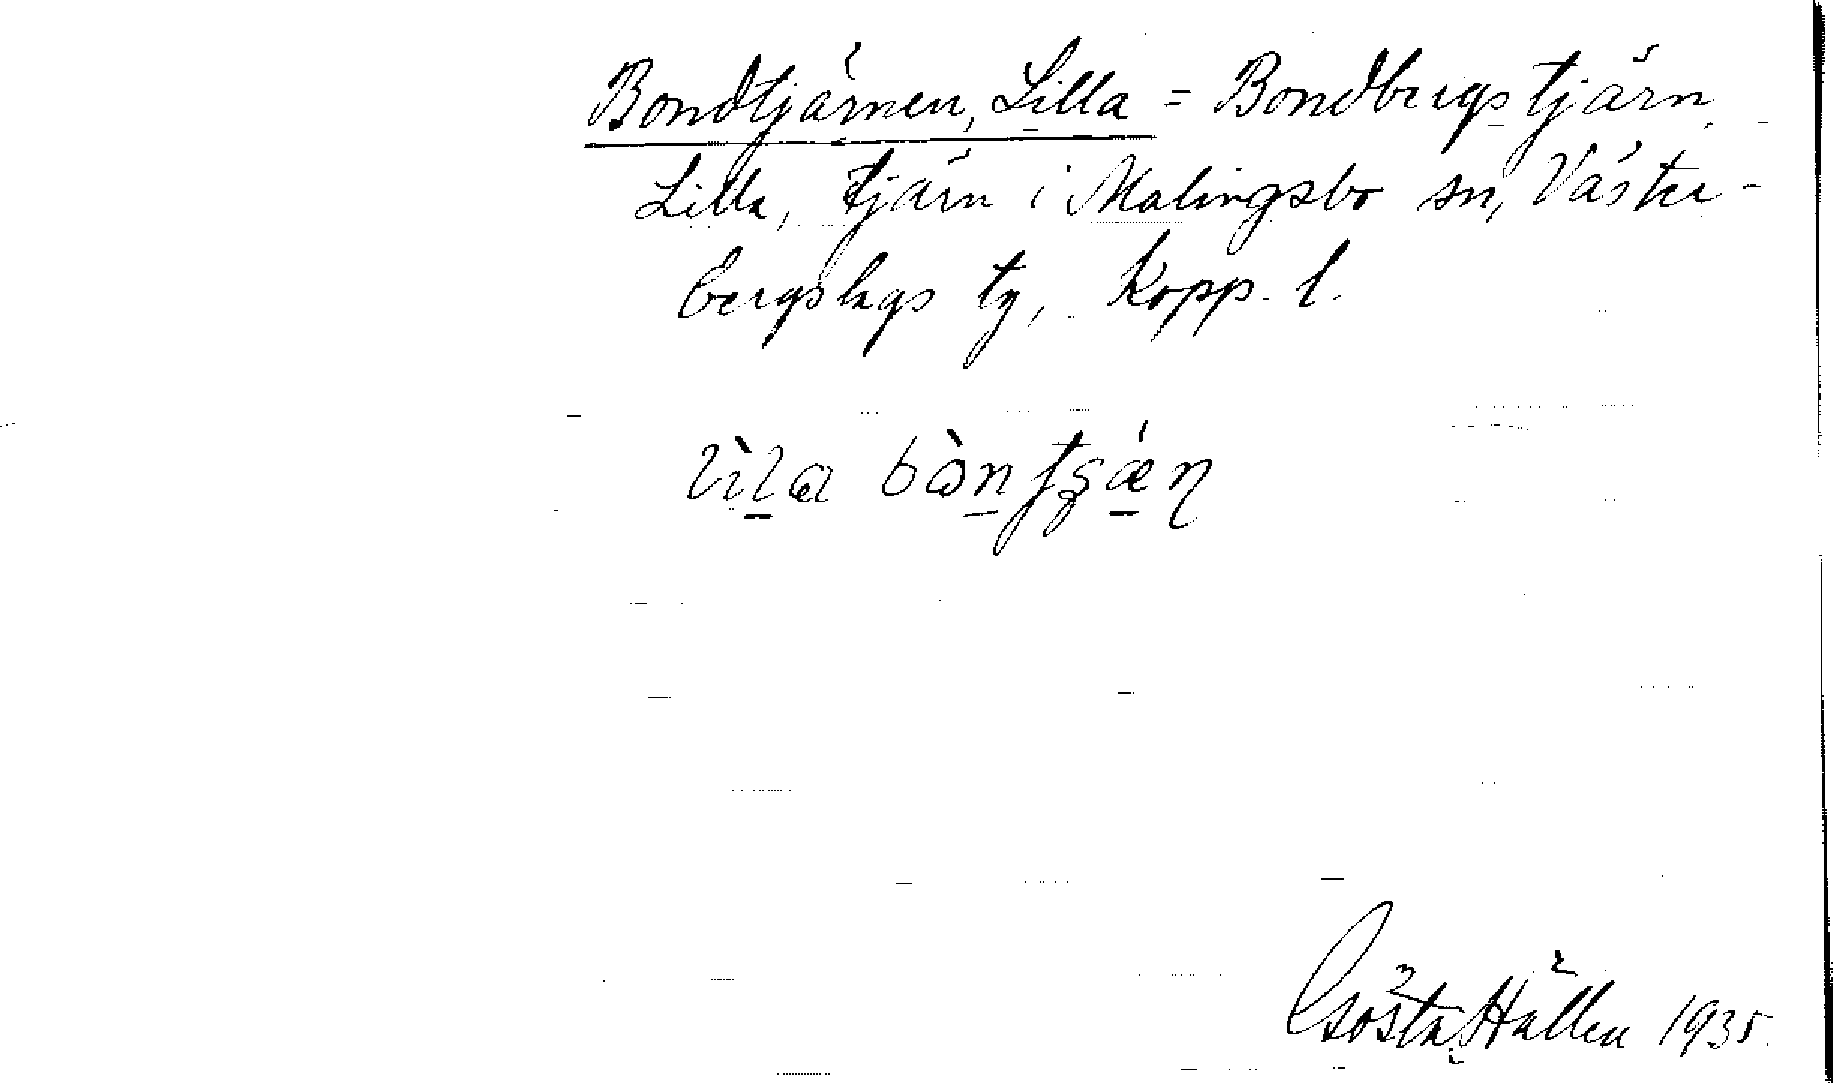 Bondtjärnen, Lilla = Bondbergstjärn,
Lilla, tjärn i Malingsbo sn, Väster-
bergslags tg, Kopp. l.
Gösta Hallen 1935.